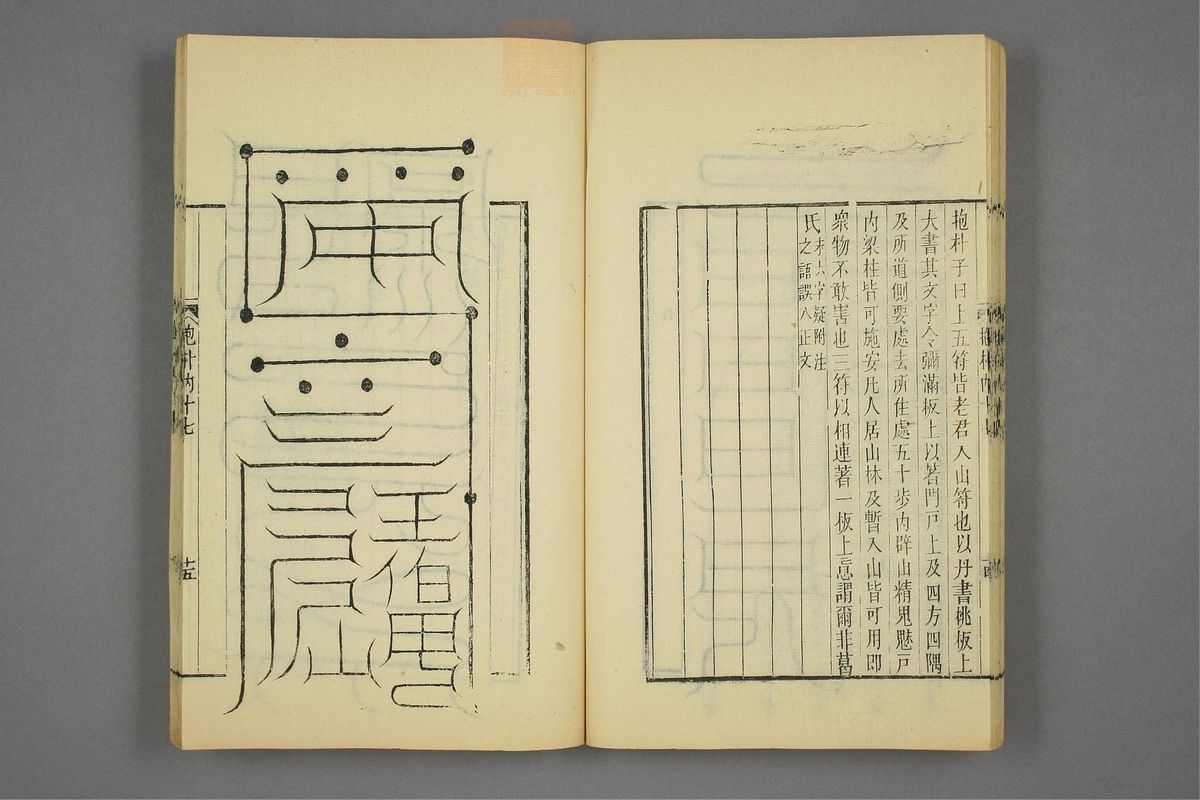 抱朴內十七
十四
抱朴子曰上五符皆老君入山符也以丹書桃板上
大書其文字令彌滿板上以著門戸上及四方四隅
及所道側要處去所住處五十步內辟山精鬼魅戸
內梁柱皆可施安凡人居山林及暫入山皆可用即
衆物不敢害也三符以相連著一板上意謂爾非葛
氏
末六字疑附注
之語誤入正文
抱朴內十七
十五
zysj.com.cn